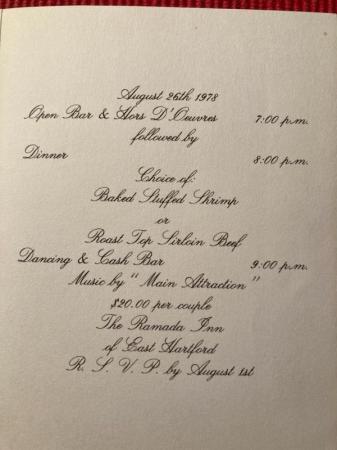 August 26th 1978
Open Bar & Hors D'Oeuvres 7:00 p.m.
followed by
Dinner 8:00 p.m.
Choice of:
Baked Stuffed Shrimp
or
Roast Top Sirloin Beef
Dancing & Cash Bar 9:00 p.m.
Music by "Main Attraction"
$20.00 per couple
The Ramada Inn
of East Hartford
R. S. V. P. by August 1st